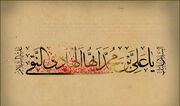 یا علی بن محمد ایها الهادی النقی